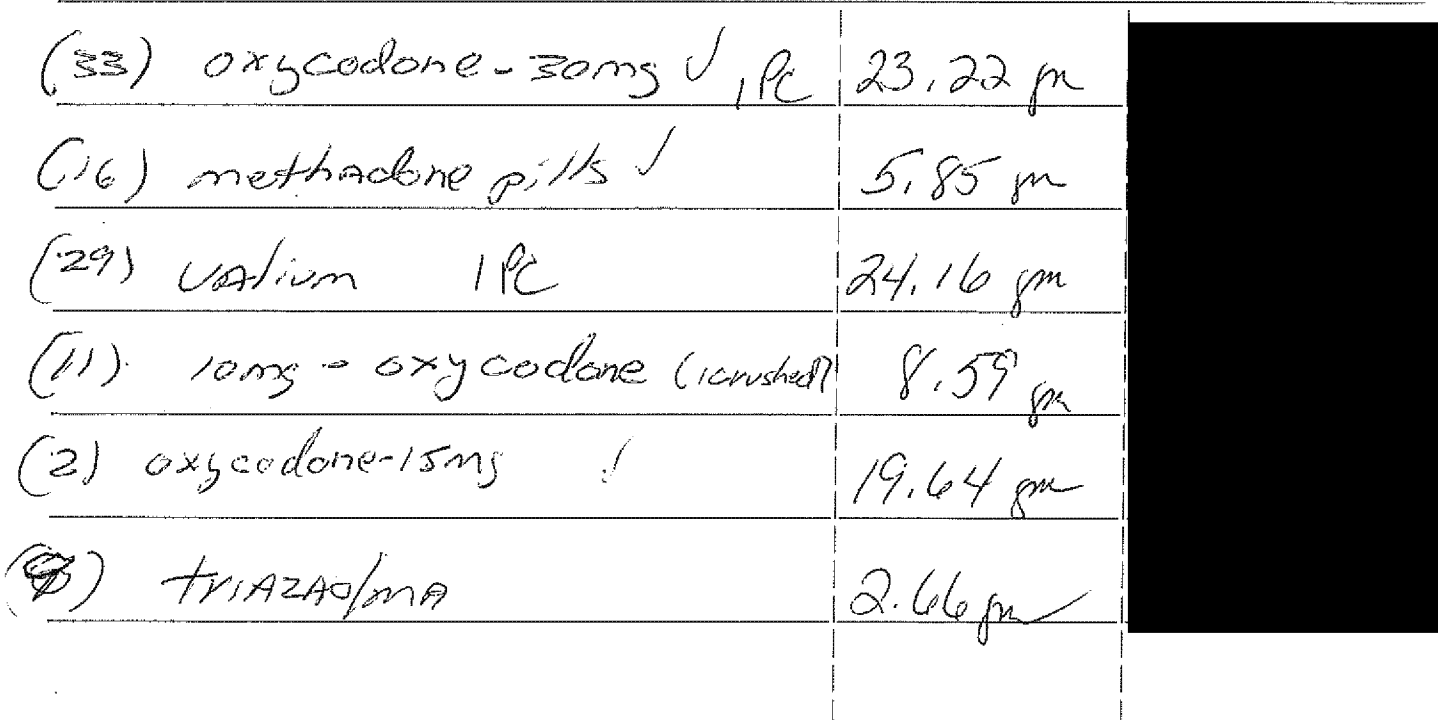 (33) oxycodone-30mg ✓, 1 PC 23.22 gm
(16) methadone pills ✓ 5.85 gm
(29) VAlium 1 PC 24.16 gm
(11) 10mg - oxycodone (1 crushed) 8.59 gm
(2) oxycodone-15mg ✓ 19.64 gm
triAZAolmA 2.66 gm